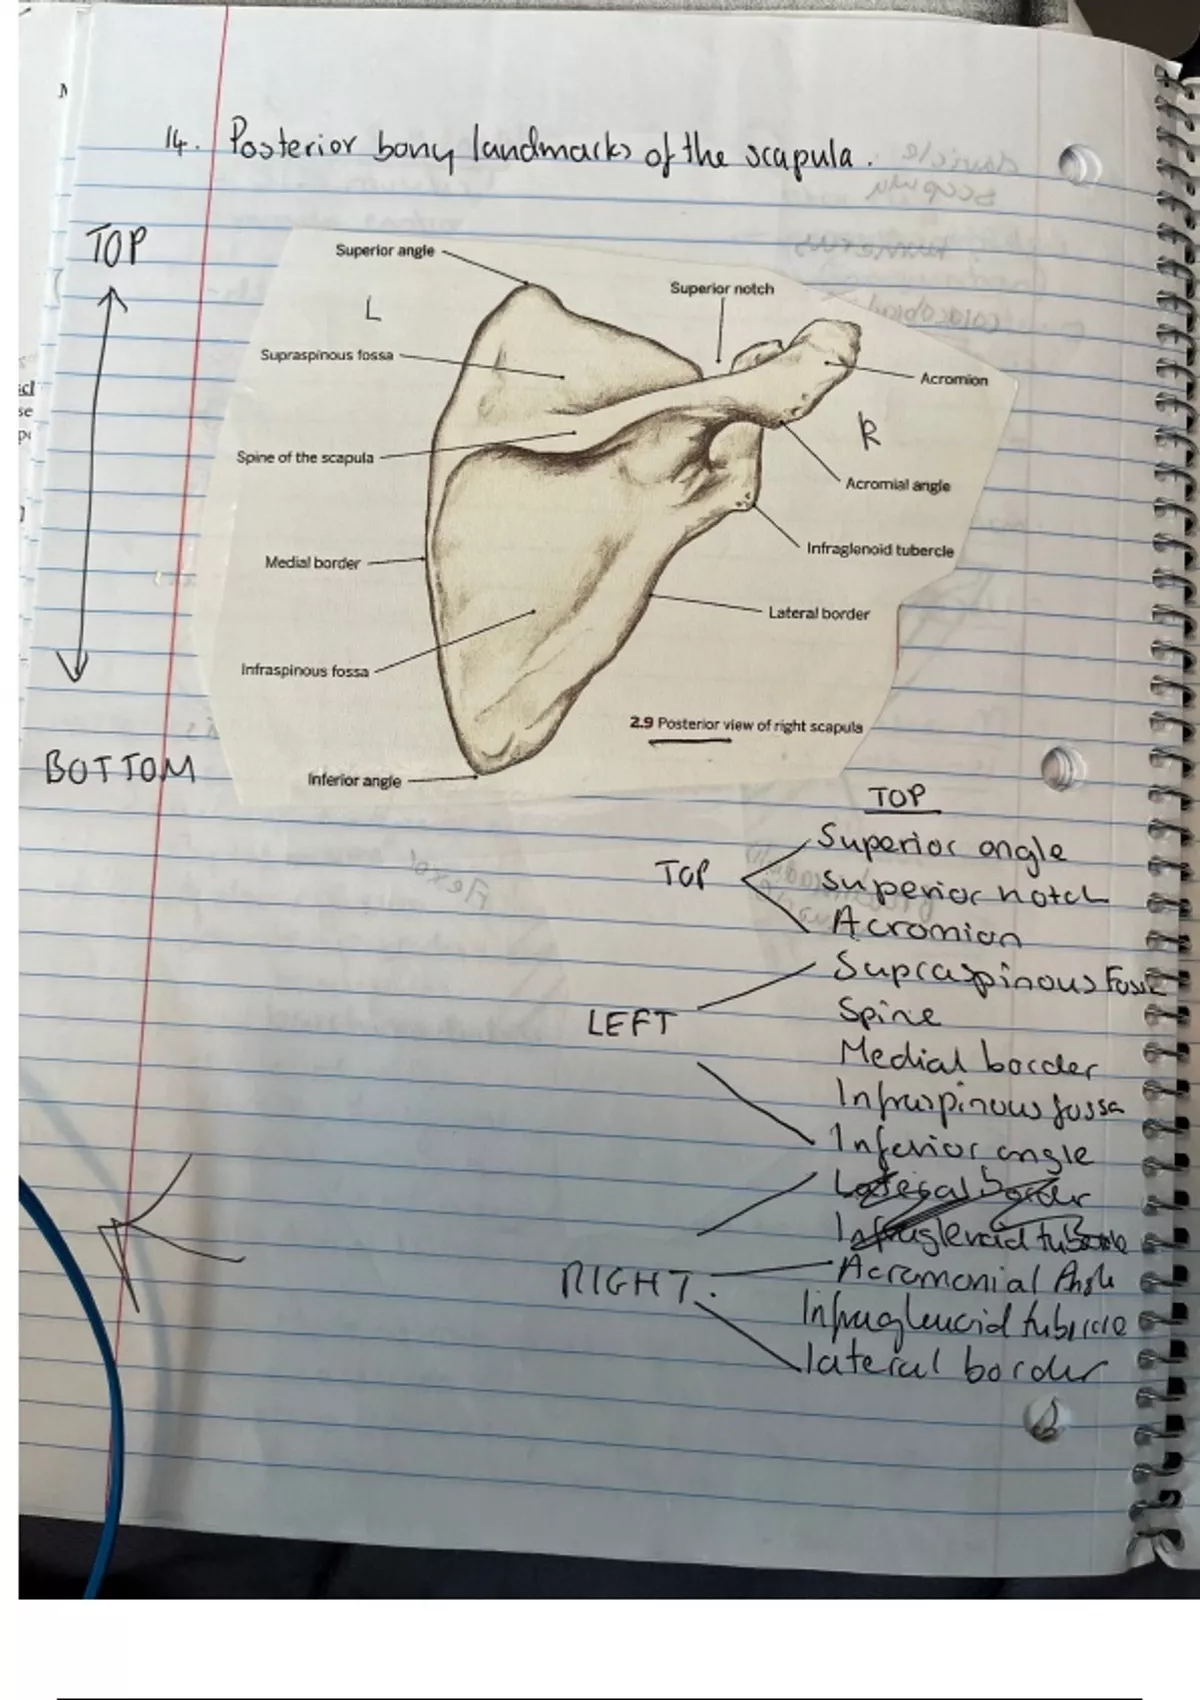 14. Posterior bony landmarks of the scapula.
TOP
Superior angle
L
Superior notch
Supraspinous fossa
Acromion
R
Spine of the scapula
Acromial angle
Infraglenoid tubercle
Medial border
Lateral border
Infraspinous fossa
2.9 Posterior view of right scapula
BOTTOM
Inferior angle
TOP
Superior angle
TOP
Superior notch
Acromion
Supraspinous Fossa
LEFT
Spine
Medial border
Infraspinous fossa
Inferior angle
Lateral border
Infraglenoid
RIGHT.
Acromonial Angle
Infraglenoid tubercle
lateral border